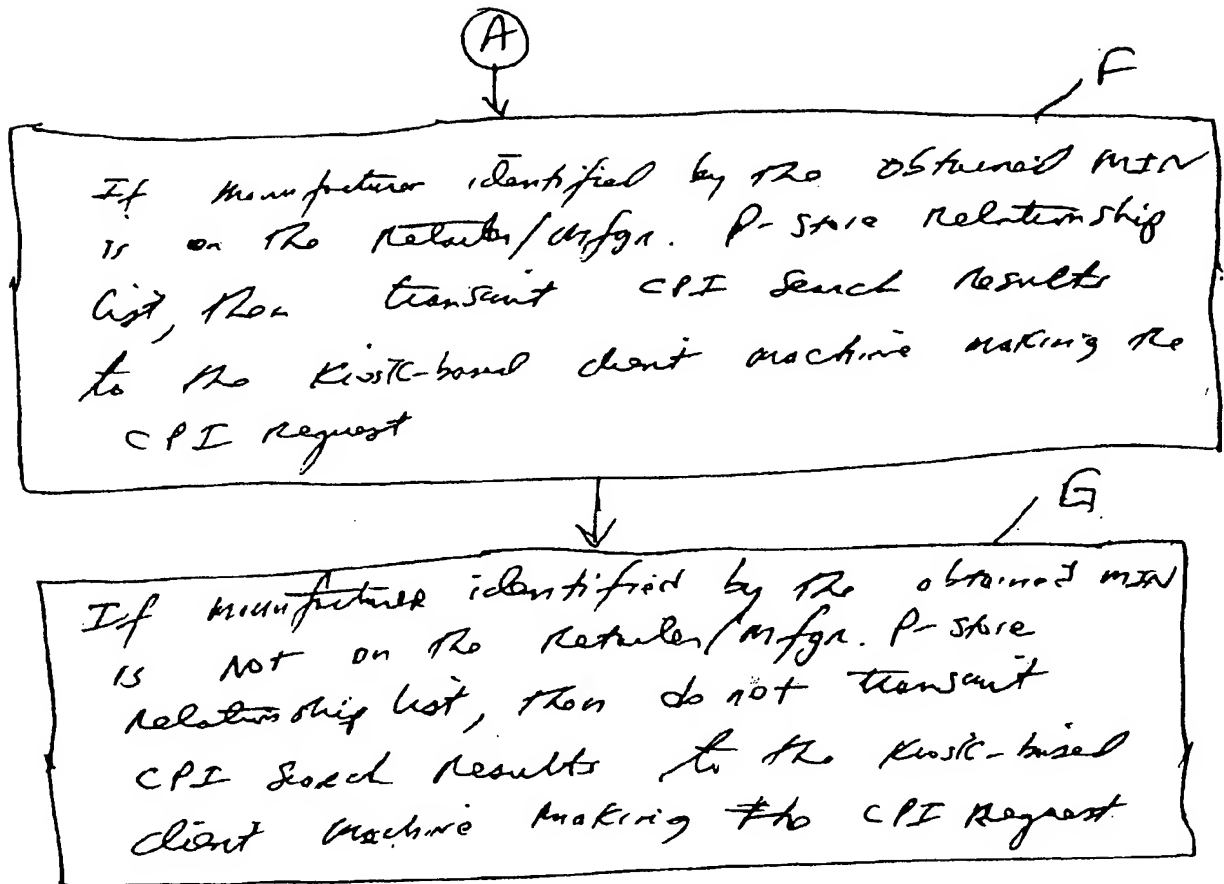 A
F
If manufacturer identified by the obtained MIN
is on the Retailer/Mfgr. P-Store relationship
list, then transmit CPI Search Results
to the Kiosk-based client machine making the
CPI Request
G
If manufacturer identified by the obtained MIN
is Not on the Retailer/Mfgr. P-Store
relationship list, then do not transmit
CPI Search Results to the Kiosk-based
client machine making the CPI Request